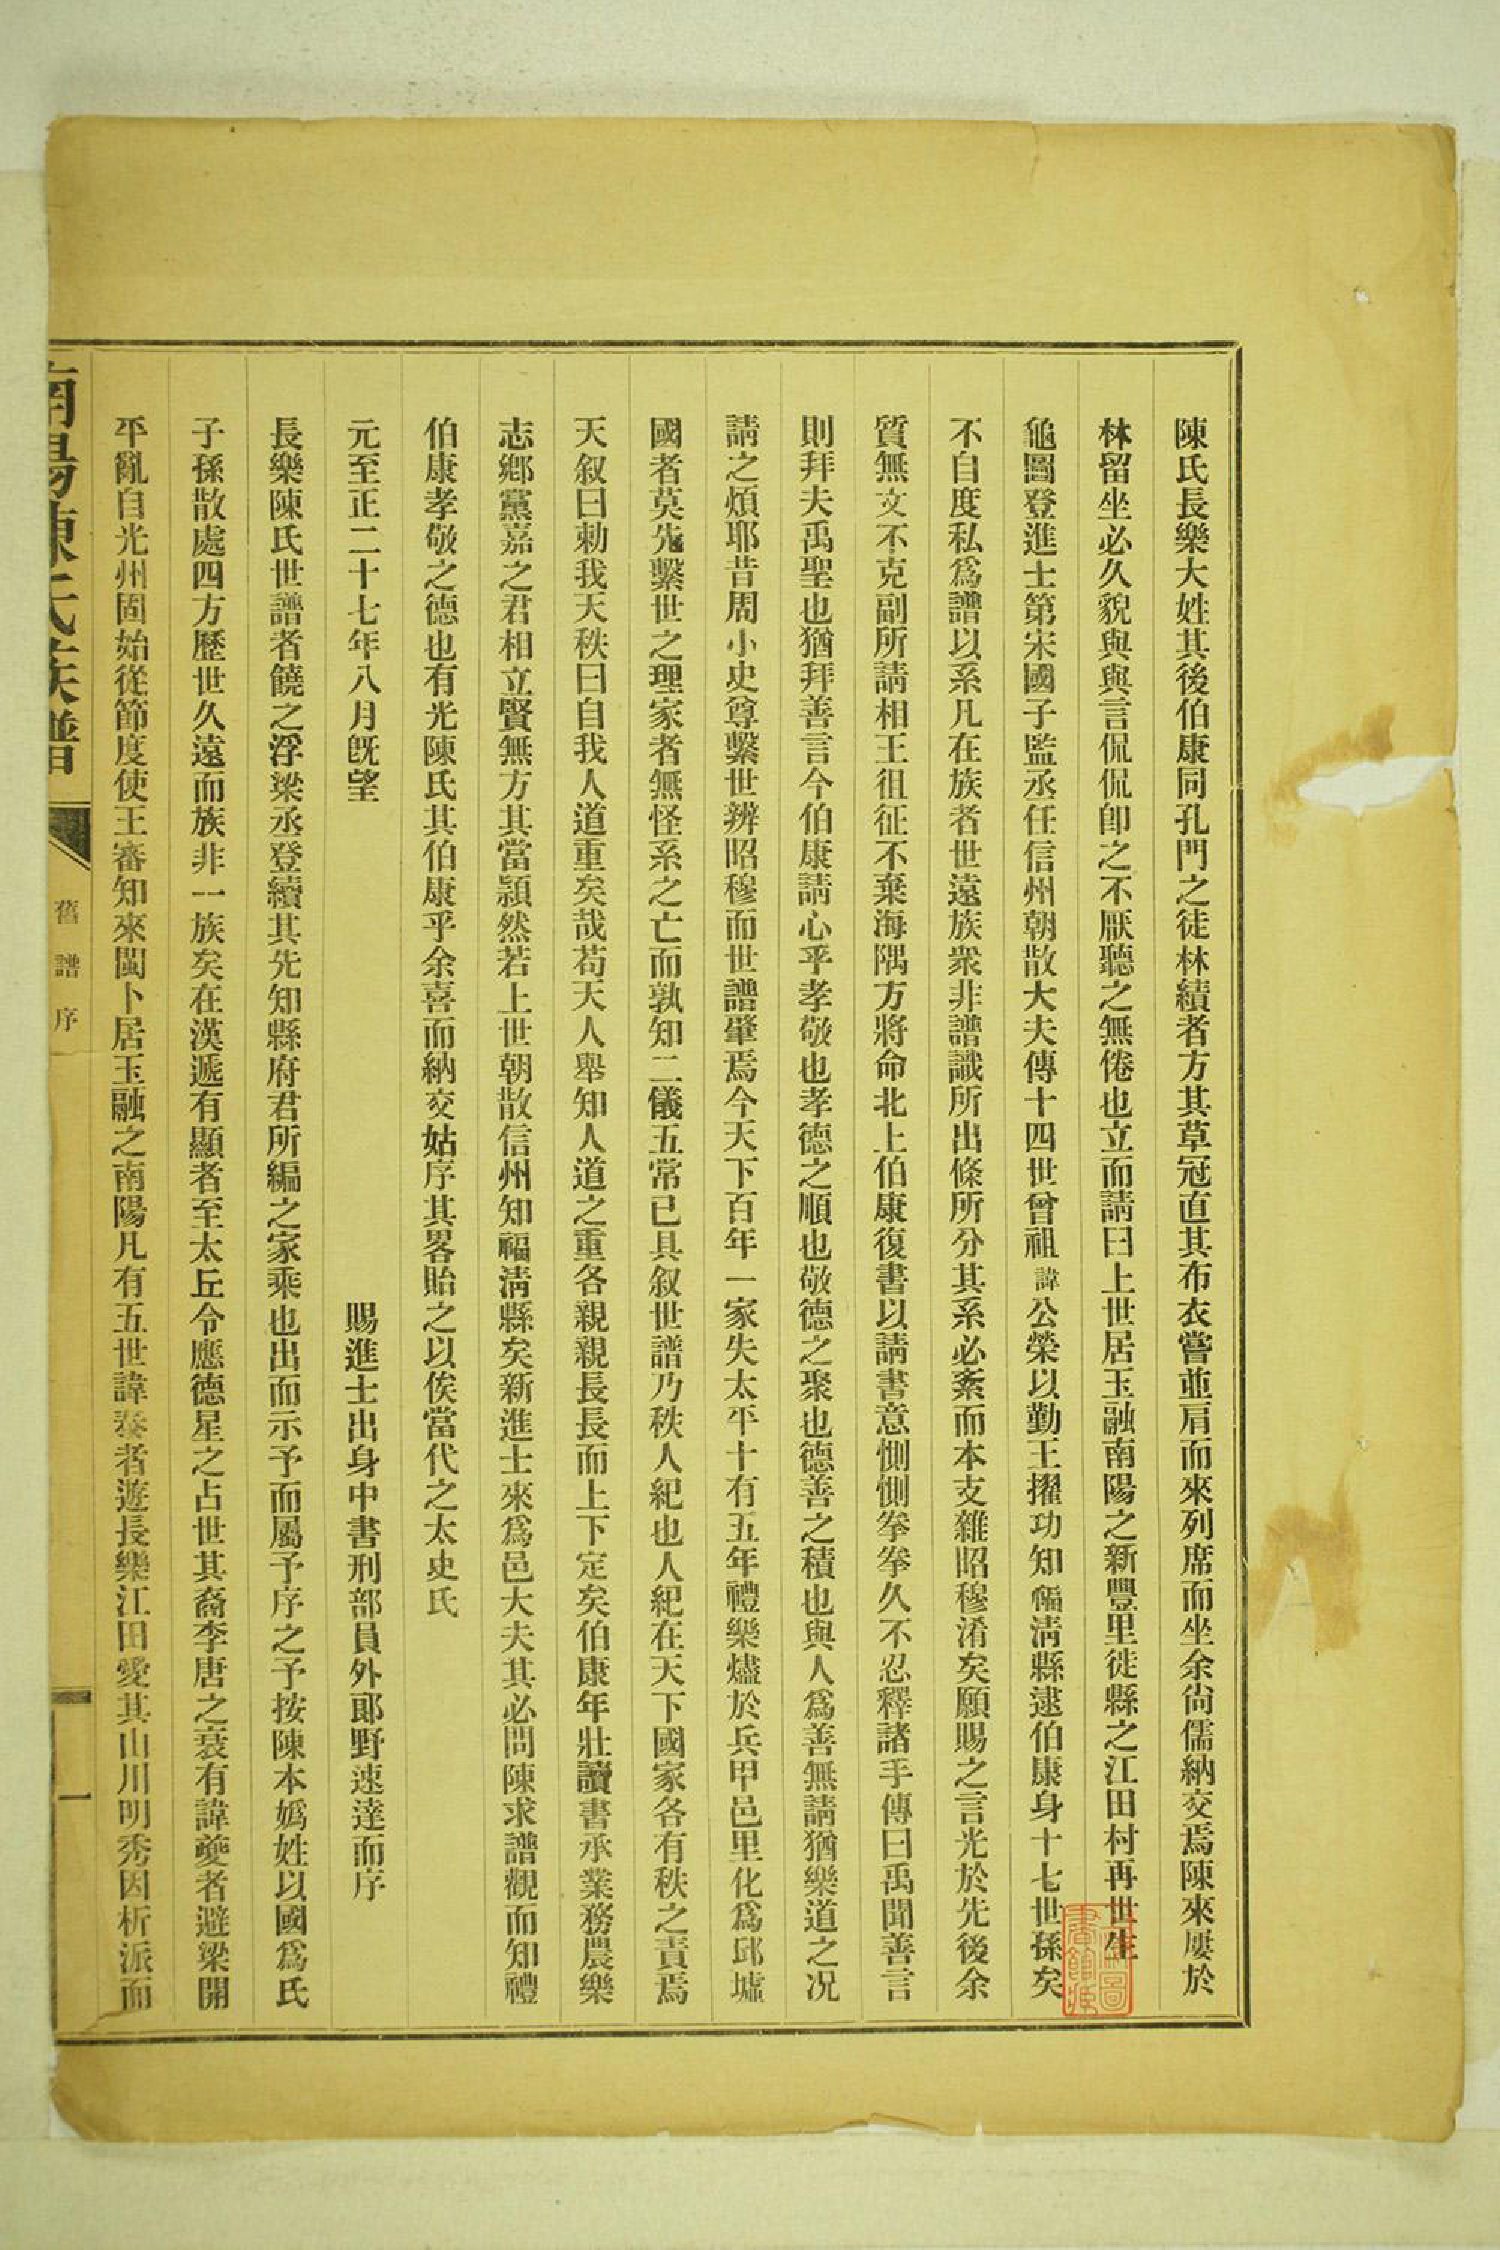 陳氏長樂大姓其後伯康同孔門之徒林績者方其草冠直其布衣嘗並肩而來列席而坐余尙儒納交焉陳來屢於
林留坐必久貌與與言侃侃卽之不厭聽之無倦也立而請曰上世居玉融南陽之新豐里徙縣之江田村再世生
龜圖登進士第宋國子監丞任信州朝散大夫傳十四世曾祖諱公榮以勤王擢功知福淸縣逮伯康身十七世孫矣
不自度私爲譜以系凡在族者世遠族衆非譜識所出條所分其系必紊而本支雜昭穆淆矣願賜之言光於先後余
質無文不克副所請相王徂征不棄海隅方將命北上伯康復書以請書意惻惻拳拳久不忍釋諸手傳曰禹聞善言
則拜夫禹聖也猶拜善言今伯康請心乎孝敬也孝德之順也敬德之聚也德善之積也與人爲善無請猶樂道之况
請之煩耶昔周小史尊繫世辨昭穆而世譜肇焉今天下百年一家失太平十有五年禮樂燼於兵甲邑里化爲邱墟
國者莫先繫世之理家者無怪系之亡而孰知二儀五常已具叙世譜乃秩人紀也人紀在天下國家各有秩之責焉
天叙曰勅我天秩曰自我人道重矣哉苟天人舉知人道之重各親親長長而上下定矣伯康年壯讀書承業務農樂
志鄉黨嘉之君相立賢無方其當穎然若上世朝散信州知福淸縣矣新進士來爲邑大夫其必問陳求譜觀而知禮
伯康孝敬之德也有光陳氏其伯康乎余喜而納交姑序其畧貽之以俟當代之太史氏
元至正二十七年八月旣望　賜進士出身中書刑部員外郎野速達而序
長樂陳氏世譜者饒之浮梁丞登續其先知縣府君所編之家乘也出而示予而屬予序之予按陳本嬀姓以國爲氏
子孫散處四方歷世久遠而族非一族矣在漢遞有顯者至太丘令應德星之占世其裔李唐之衰有諱夔者避梁開
平亂自光州固始從節度使王審知來閩卜居玉融之南陽凡有五世諱泰者遊長樂江田愛其山川明秀因析派而
南陽陳氏族譜
舊譜序
一